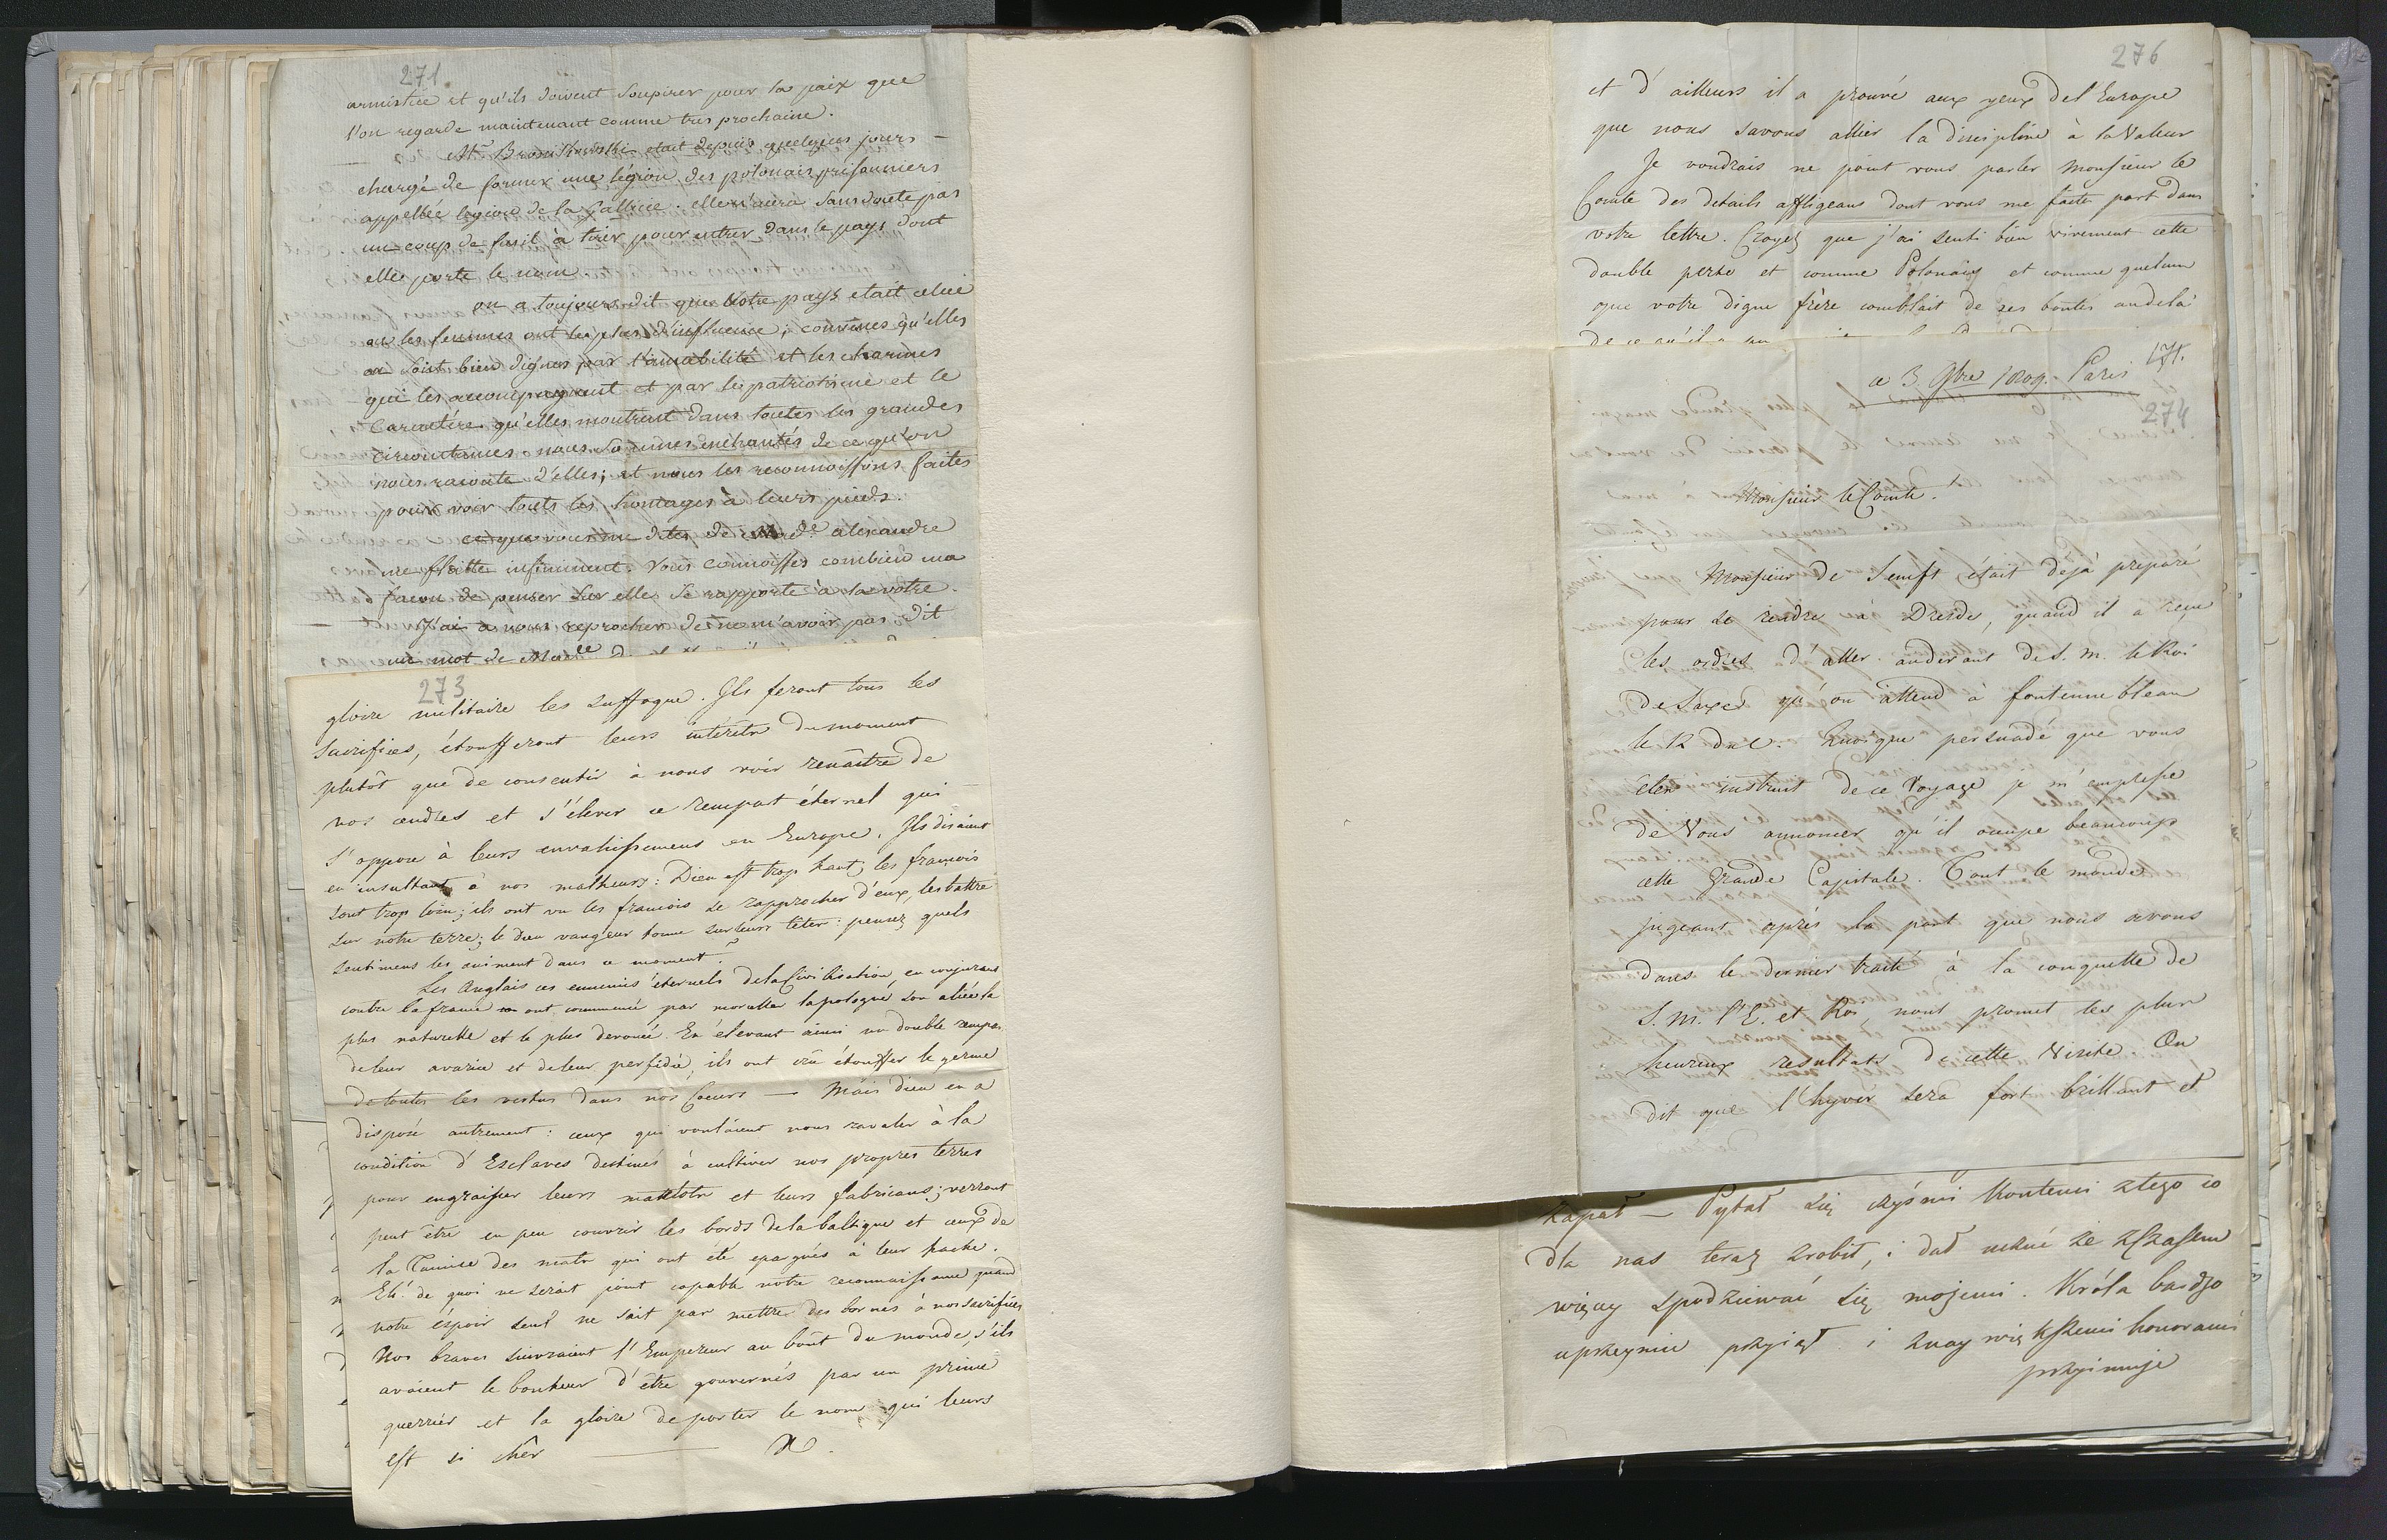 271.
armistice et qu'ils doivent soupirer pour la paix que
l'on regarde maintenant comme tres prochaine.
Mr. Bronikowski etait depuis quelques jours —
chargé de former une légion des polonais prisonniers
appellée legion de la Gallicie. elle n'aura sans doute pas
un coup de fusil à tirer pour entrer dans le pays dont
elle porte le nom.
on a toujours dit que Votre pays etait celui
ou les femmes ont le plus d'influence; convenes qu'elles
en sont bien dignes par l'amabilité et les charmes
qui les accompagnent et par le patriotisme et le
Caractére qu'elles montrent dans toutes les grandes
circonstances. nous sommes enchantés de ce qu'on
nous raconte d'elles; et nous les reconnoissons faites
pour voir touts les homages à leurs pieds.
ce que vous me dites de Made. alexandre
me flatte infiniment. Vous connoisses combien ma
facon de penser sur elle se rapporte à la votre.
— J'ai a vous reprocher de ne m'avoir pas dit
un mot de Made
273
gloire militaire les suffoque. Ils feront tous les
sacrifices, étoufferont leurs interêts du moment
plutôt que de consentir à nous voir renaître de
nos cendres et s'élever ce rempart éternel qui
s'oppose à leurs envahissemens en Europe. Ils disaient
en insultant à nos malheurs: Dieu est trop haut, les françois
sont trop loin; ils ont vu les francois se rapprocher d'eux, les battre
sur notre terre; le dieu vangeur tonne sur leurs têtes: pensez quels
sentimens les animent dans ce moment.
Les Anglais ces ennemis éternels de la Civilisation, en conjurant
contre la france ont commencé par morceller la pologne, son aliée la
plus naturelle et le plus devouée. En élevant ainsi un double rempar
de leur avarice et de leur perfidie, ils ont crû étouffer le germe
de toutes les vertus dans nos Coeurs — Mais dieu en a
disposé autrement: ceux qui voulaient nous ravaler à la
condition d'Esclaves destinés à cultiver nos propres terres
pour engraisser leurs matelots et leurs fabricans; verront
peut être en peu couvrir les bords de la baltique et ceux de
la Tamise des mats qui ont été epargnés à leur hache.
Eh! de quoi ne serait point capable notre reconnaissance quand
notre éspoir seul ne sait pas mettre des bornes à nos sacrifices
Nos braves suivraient l'Empereur au bout du monde, s'ils
avaient le bonheur d'être gouvernés par un prince
guerriér et la gloire de porter le nom qui leurs
est si chêr —
276
et d'ailleurs il a prouvé aux yeux de l'Europe
que nous savons allier la discipline à la Valeur
Je voudrais ne point vous parler Monsieur le
Comte des details affligeans dont vous me faites part dans
votre lettre. Croyez que j'ai senti bien vivement cette
double perte et comme Polonais et comme quelcun
que votre digne frère comblait de ses bontés audelà
de ce qu'il a
ce 3 9bre 1809. Paris
171.
274
Monsieur le Comte!
Monsieur de Senft était déjà préparé
pour se rendre à Dresde, quand il a reçu
les ordres d'aller audevant de S. M. le Roi
de Saxe qu'on attend à fontennebleau
le 12 du c. Quoique persuadé que vous
êtes instruit de ce Voyage je m'empresse
de Vous annoncer qu'il occupe beaucoup
cette Grande Capitale. Tout le monde
jugeant après la part que nous avons
dans le dernier traité à la conquette de
S. M. l'E. et Roi, nous promet les plus
heureux resultats de cette Visite On
dit que l'hyver sera fort brillant et
zapał — Pytał się czyśmi kontenci ztego co
dla nas teraz zrobił, i dał uczuć że zczasem
więcey spodziewać się możemi. Króla bardzo
uprzeymie przyiął i znay większemi honorami
przyimuje